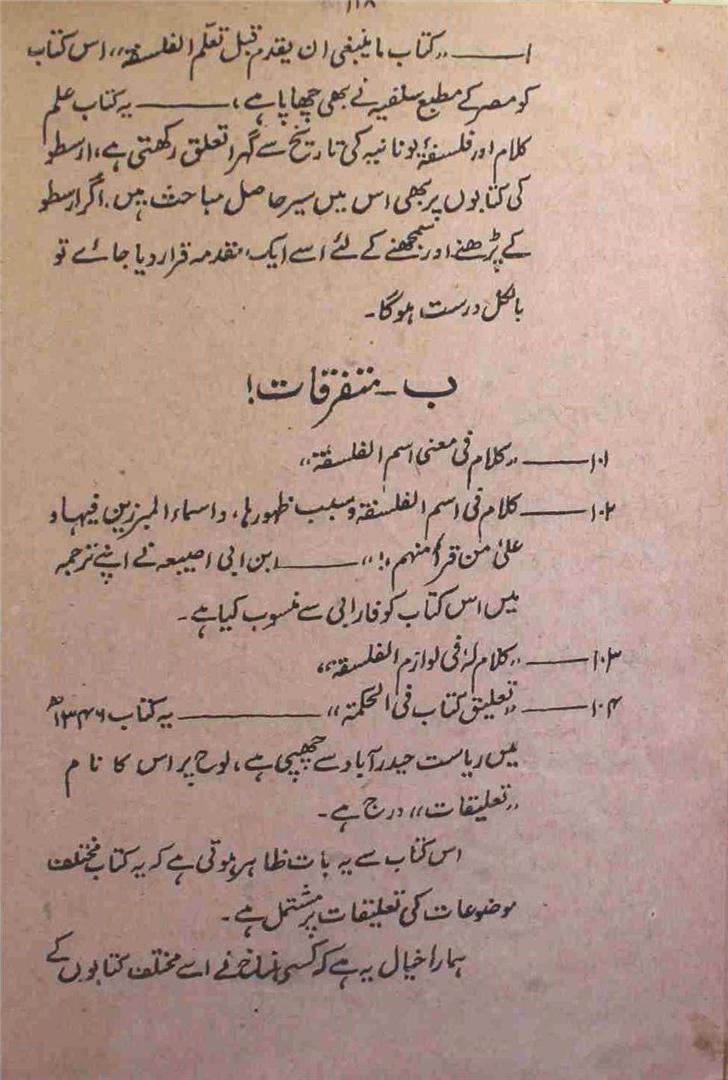 ۱۱۸
۱ــــ "کتاب ما ینبغی ان یقدم قبل تعلّم الفلسفۃ"، اس کتاب
کو مصر کے مطبع سلفیہ نے بھی چھاپا ہے، ــــ یہ کتاب علم
کلام اور فلسفۂ یونانیہ کی تاریخ سے گہرا تعلق رکھتی ہے، ارسطو
کی کتابوں پر بھی اس میں سیر حاصل مباحث ہیں۔ اگر ارسطو
کے پڑھنے اور سمجھنے کے لئے اسے ایک مقدمہ قرار دیا جائے تو
بالکل درست ہوگا۔
ب ـ متفرقات!
۱۰۱ــــ "کلام فی معنی اسم الفلسفۃ"،
۱۰۲ــــ کلام فی اسم الفلسفۃ و سبب ظہورہا، و اسماء المبرزین فیہا و
علیٰ من قرأ منہم!" ــــ ابن ابی اصیبعہ نے اپنے ترجمہ
میں اس کتاب کو فارابی سے منسوب کیا ہے۔
۱۰۳ــــ "کلام لہٗ فی لوازم الفلسفۃ"،
۱۰۴ــــ "تعلیق کتاب فی الحکمۃ" ــــ یہ کتاب ۱۳۴۶ھ
میں ریاست حیدر آباد سے چھپی ہے، لوح پر اس کا نام
"تعلیقات" درج ہے۔
اس کتاب سے یہ بات ظاہر ہوتی ہے کہ یہ کتاب مختلف
موضوعات کی تعلیقات پر مشتمل ہے۔
ہمارا خیال یہ ہے کہ کسی نے اسے مختلف کتابوں کے